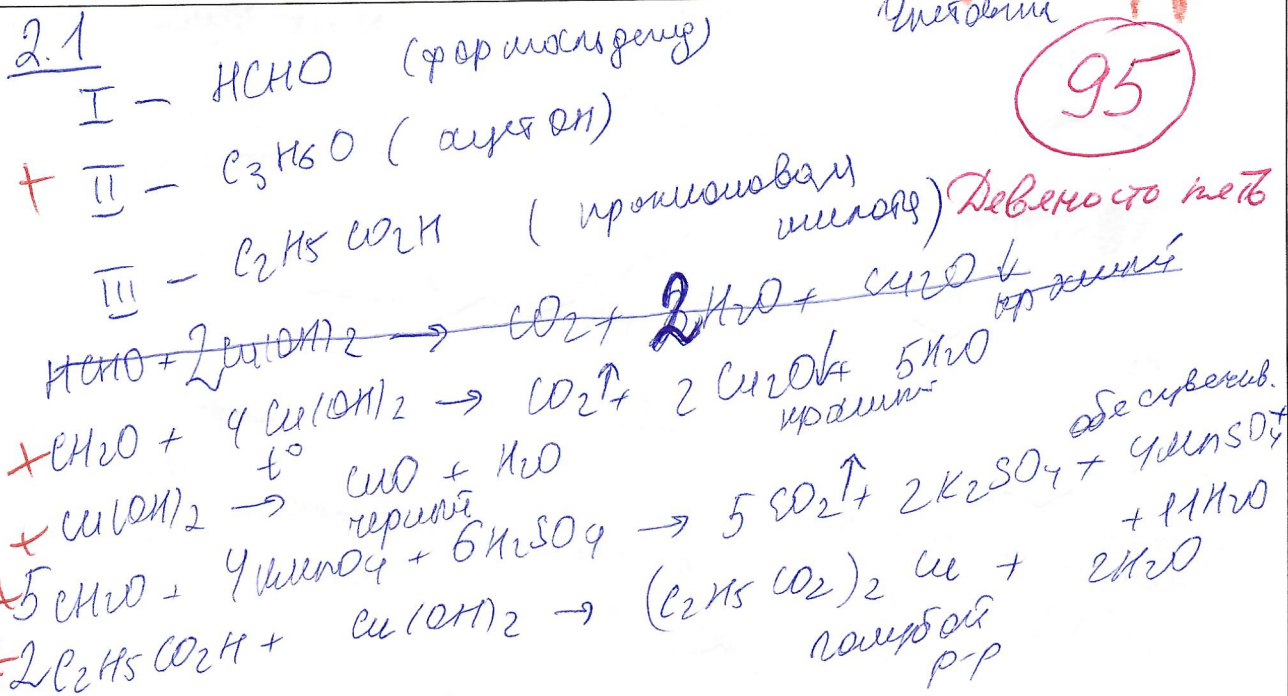 Чистовик
2.1
95
I – HCHO (формальдегид)
+ II – C3H6O (ацетон)
III – C2H5CO2H (пропионовая кислота)
Девяносто пять
HCHO + 2Cu(OH)2 → CO2 + 2H2O + Cu2O↓ красный
+ CH2O + 4Cu(OH)2 → CO2↑ + 2Cu2O↓ + 5H2O
красный
+ Cu(OH)2 t° → CuO + H2O
черный
+ 5CH2O + 4KMnO4 + 6H2SO4 → 5CO2↑ + 2K2SO4 + 4MnSO4 +
обесцвечив.
+ 11H2O
2C2H5CO2H + Cu(OH)2 → (C2H5CO2)2Cu + 2H2O
голубой
р-р